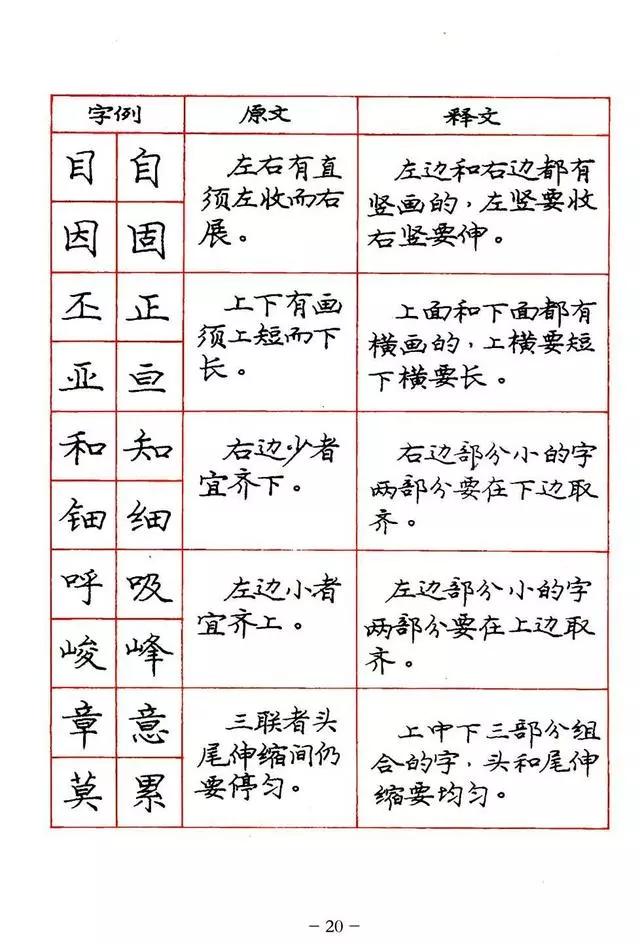 字例 原文 释文
目 自
因 固
左右有直
须左收而右
展。
左边和右边都有
竖画的，左竖要收
右竖要伸。
丕 正
亚 亘
上下有画
须上短而下
长。
上面和下面都有
横画的，上横要短
下横要长。
和 知
钿 细
右边少者
宜齐下。
右边部分小的字
两部分要在下边取
齐。
呼 吸
峻 峰
左边小者
宜齐上。
左边部分小的字
两部分要在上边取
齐。
章 意
莫 累
三联者头
尾伸缩间仍
要停匀。
上中下三部分组
合的字，头和尾伸
缩要均匀。
- 20 -